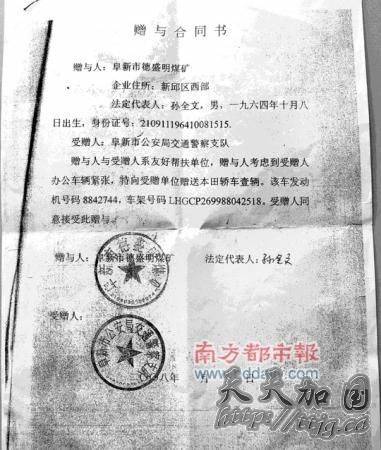 赠与合同书
赠与人：阜新市德盛明煤矿
企业住所：新邱区西部
法定代表人：孙全文，男，一九六四年十月八
日出生，身份证号：210911196410081515.
受赠人：阜新市公安局交通警察支队
赠与人与受赠人系友好帮扶单位，赠与人考虑到受赠人
办公车辆紧张，特向受赠单位赠送本田轿车壹辆。该车发动
机号码8842744，车架号码LHGCP269988042518。受赠人同
意接受此赠与。
赠与人：阜新市德盛明煤矿
法定代表人：孙全文
受赠人：
阜新市公安局交通警察支队
八年 月 日
南方都市報
www.nddaily.com
天天加固
http://ttjg.cn